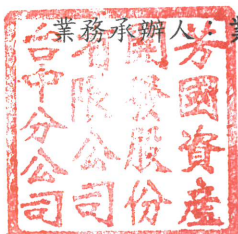 業務承辦人：業
芳國資產
開發股份
有限公司
台中分公司